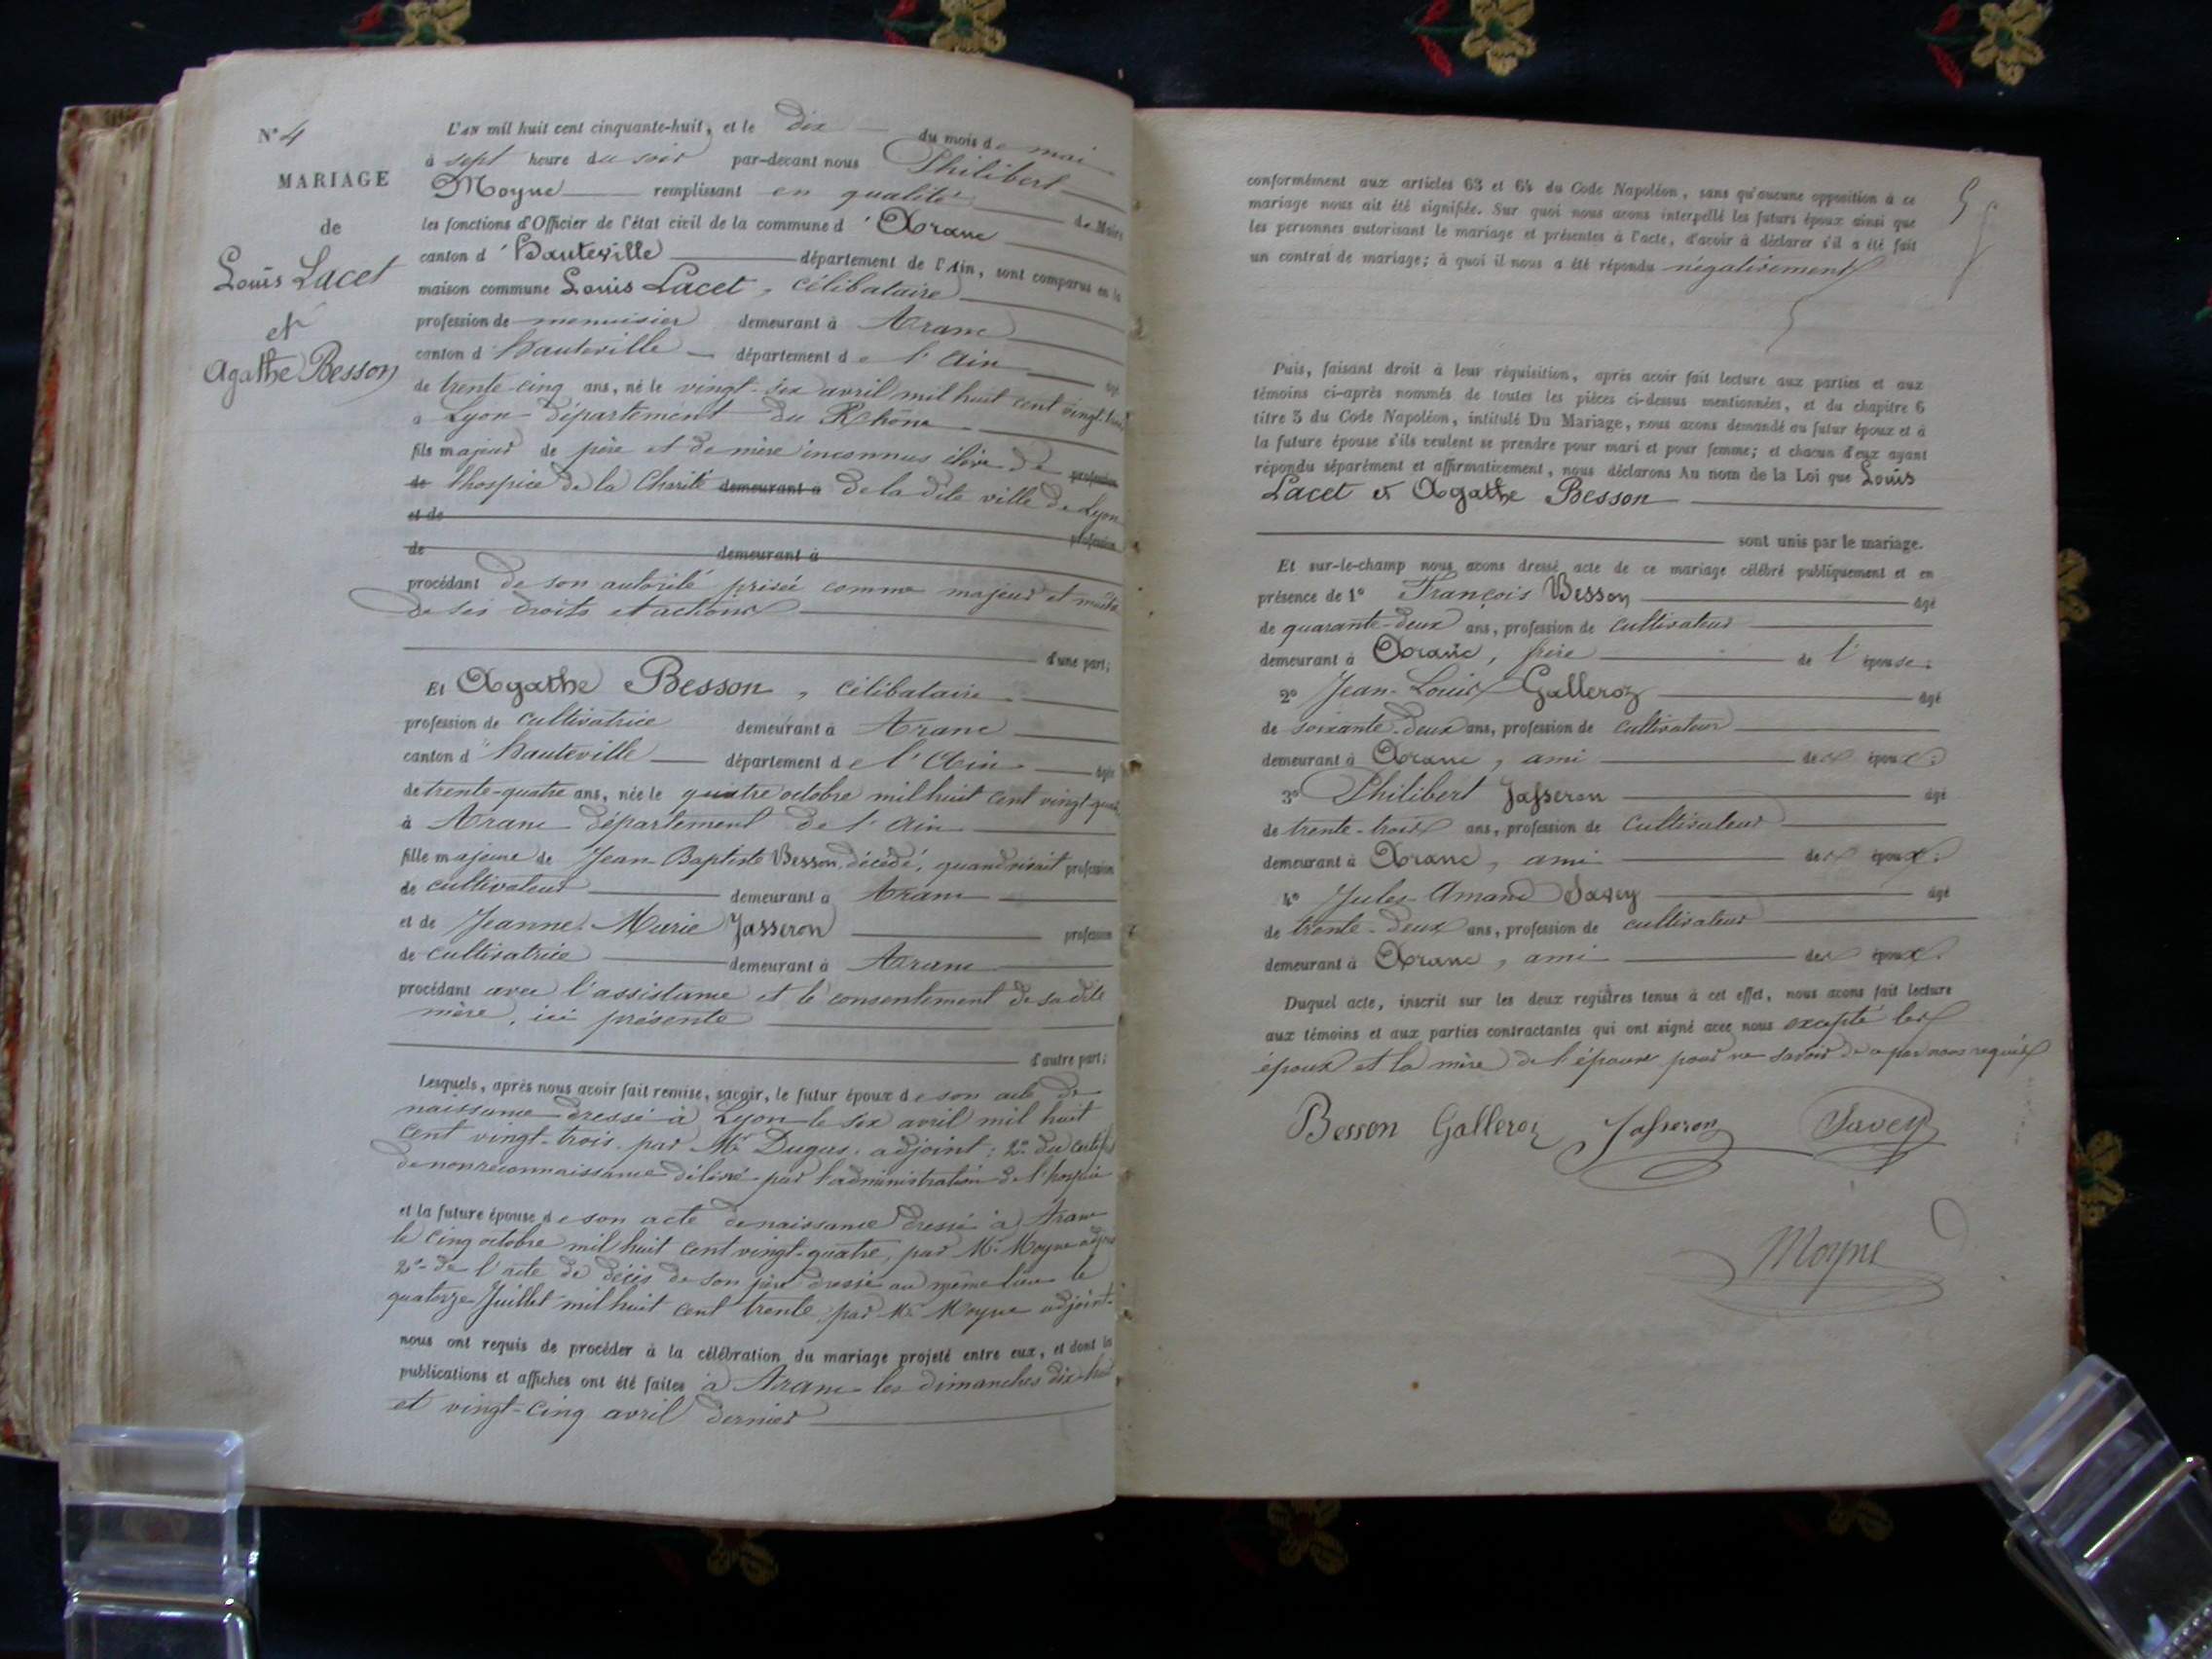 N° 4
MARIAGE
de
Louis Lacet
et
Agathe Besson
L'an mil huit cent cinquante-huit, et le dix du mois de mai
à sept heure du soir par-devant nous Philibert
Moyne remplissant en qualité de Maire
les fonctions d'Officier de l'état civil de la commune d'Aranc
canton d'hauteville département de l'Ain, sont comparus en la
maison commune Louis Lacet, célibataire
profession de menuisier demeurant à Aranc
canton d'hauteville département de l'Ain
de trente-cinq ans, né le vingt-six avril mil huit cent vingt-trois
à Lyon département du Rhône
fils majeur de père et de mère inconnus élève de profession
de l'hospice de la Charité demeurant à de la dite ville de Lyon
et de profession
de demeurant à
procédant de son autorité privée comme majeur et maître
de ses droits et actions
d'une part;
Et Agathe Besson, célibataire
profession de cultivatrice demeurant à Aranc
canton d'hauteville département de l'Ain âgée
de trente-quatre ans, née le quatre octobre mil huit cent vingt-quatre
à Aranc département de l'Ain
fille majeure de Jean-Baptiste Besson, décédé, quand vivait profession
de cultivateur demeurant à Aranc
et de Jeanne-Marie Jasseron profession
de cultivatrice demeurant à Aranc
procédant avec l'assistance et le consentement de sa dite
mère, ici présente
d'autre part;
Lesquels, après nous avoir fait remise, savoir, le futur époux de son acte de
naissance dressé à Lyon le six avril mil huit
cent vingt-trois par Mr Dugas, adjoint; 2° du certificat
de non reconnaissance délivré par l'administration de l'hospice
et la future épouse de son acte de naissance dressé à Aranc
le cinq octobre mil huit cent vingt-quatre, par Mr Moyne adjoint
2° de l'acte de décès de son père dressé au même lieu le
quatorze Juillet mil huit cent trente par Mr Moyne adjoint
nous ont requis de procéder à la célébration du mariage projeté entre eux, et dont les
publications et affiches ont été faites à Aranc les dimanches dix-huit
et vingt-cinq avril dernier
conformément aux articles 63 et 64 du Code Napoléon, sans qu'aucune opposition à ce
mariage nous ait été signifiée. Sur quoi nous avons interpellé les futurs époux ainsi que
les personnes autorisant le mariage et présentes à l'acte, d'avoir à déclarer s'il a été fait
un contrat de mariage; à quoi il nous a été répondu négativement
Puis, faisant droit à leur réquisition, après avoir fait lecture aux parties et aux
témoins ci-après nommés de toutes les pièces ci-dessus mentionnées, et du chapitre 6
titre 5 du Code Napoléon, intitulé Du Mariage, nous avons demandé au futur époux et à
la future épouse s'ils veulent se prendre pour mari et pour femme; et chacun d'eux ayant
répondu séparément et affirmativement, nous déclarons Au nom de la Loi que Louis
Lacet et Agathe Besson
sont unis par le mariage.
Et sur-le-champ nous avons dressé acte de ce mariage célébré publiquement et en
présence de 1° François Besson âgé
de quarante-deux ans, profession de cultivateur
demeurant à Aranc, frère de l'épouse.
2° Jean-Louis Galleroz âgé
de soixante-deux ans, profession de cultivateur
demeurant à Aranc, ami des époux.
3° Philibert Jasseron âgé
de trente-trois ans, profession de cultivateur
demeurant à Aranc, ami des époux.
4° Jules-Amand Savey âgé
de trente-deux ans, profession de cultivateur
demeurant à Aranc, ami des époux.
Duquel acte, inscrit sur les deux registres tenus à cet effet, nous avons fait lecture
aux témoins et aux parties contractantes qui ont signé avec nous excepté les
époux et la mère de l'épouse pour ne savoir de ce par nous requis
Besson Galleroz Jasseron Savey
Moyne